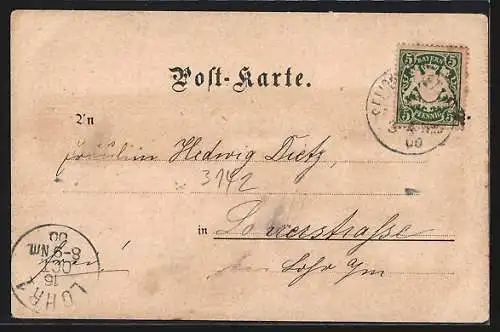 BAYERN
5 5
5 PFENNIG 5
00
Post-Karte.
An
Fräulein Hedwig Dietz,
3142
in
Lohr a/m
LOHR
15
OCT
8-9 Nm.
00